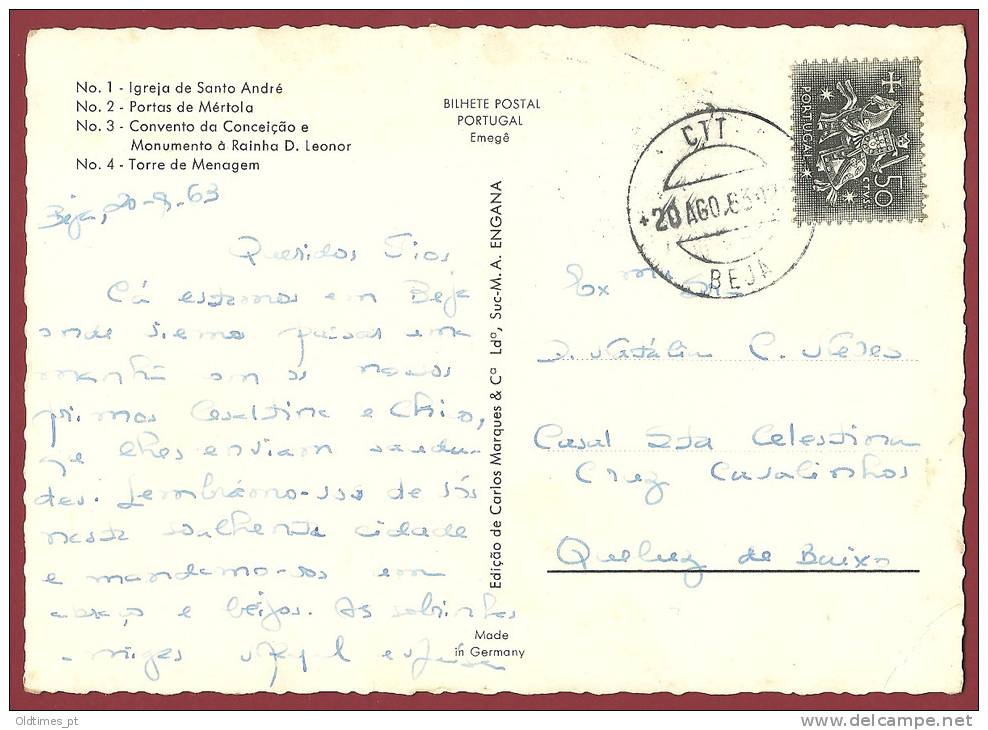 No. 1 - Igreja de Santo André
No. 2 - Portas de Mértola
No. 3 - Convento da Conceição e
Monumento à Rainha D. Leonor
No. 4 - Torre de Menagem
BILHETE POSTAL
PORTUGAL
Emegê
CTT
20 AGO.63
BEJA
PORTUGAL
50
CTVS
Beja, 20-8-63
Queridos Tios
Cá estamos em Beja
onde viemos passar uma
manhã com os nossos
primos Cesaltina e Chico,
que lhes enviam sauda-
des. Lembrámo-nos de vós
nesta cidade
e mandamo-vos um
abraço e beijos. As sobrinhas
amigas
Edição de Carlos Marques & Cª Ldª, Suc-M. A. ENGANA
Made
in Germany
Exma Sra
D. Natália C. Neves
Casal Sta Celestina
Cruz Casalinhos
Queluz de Baixo
Oldtimes_pt
www.delcampe.net